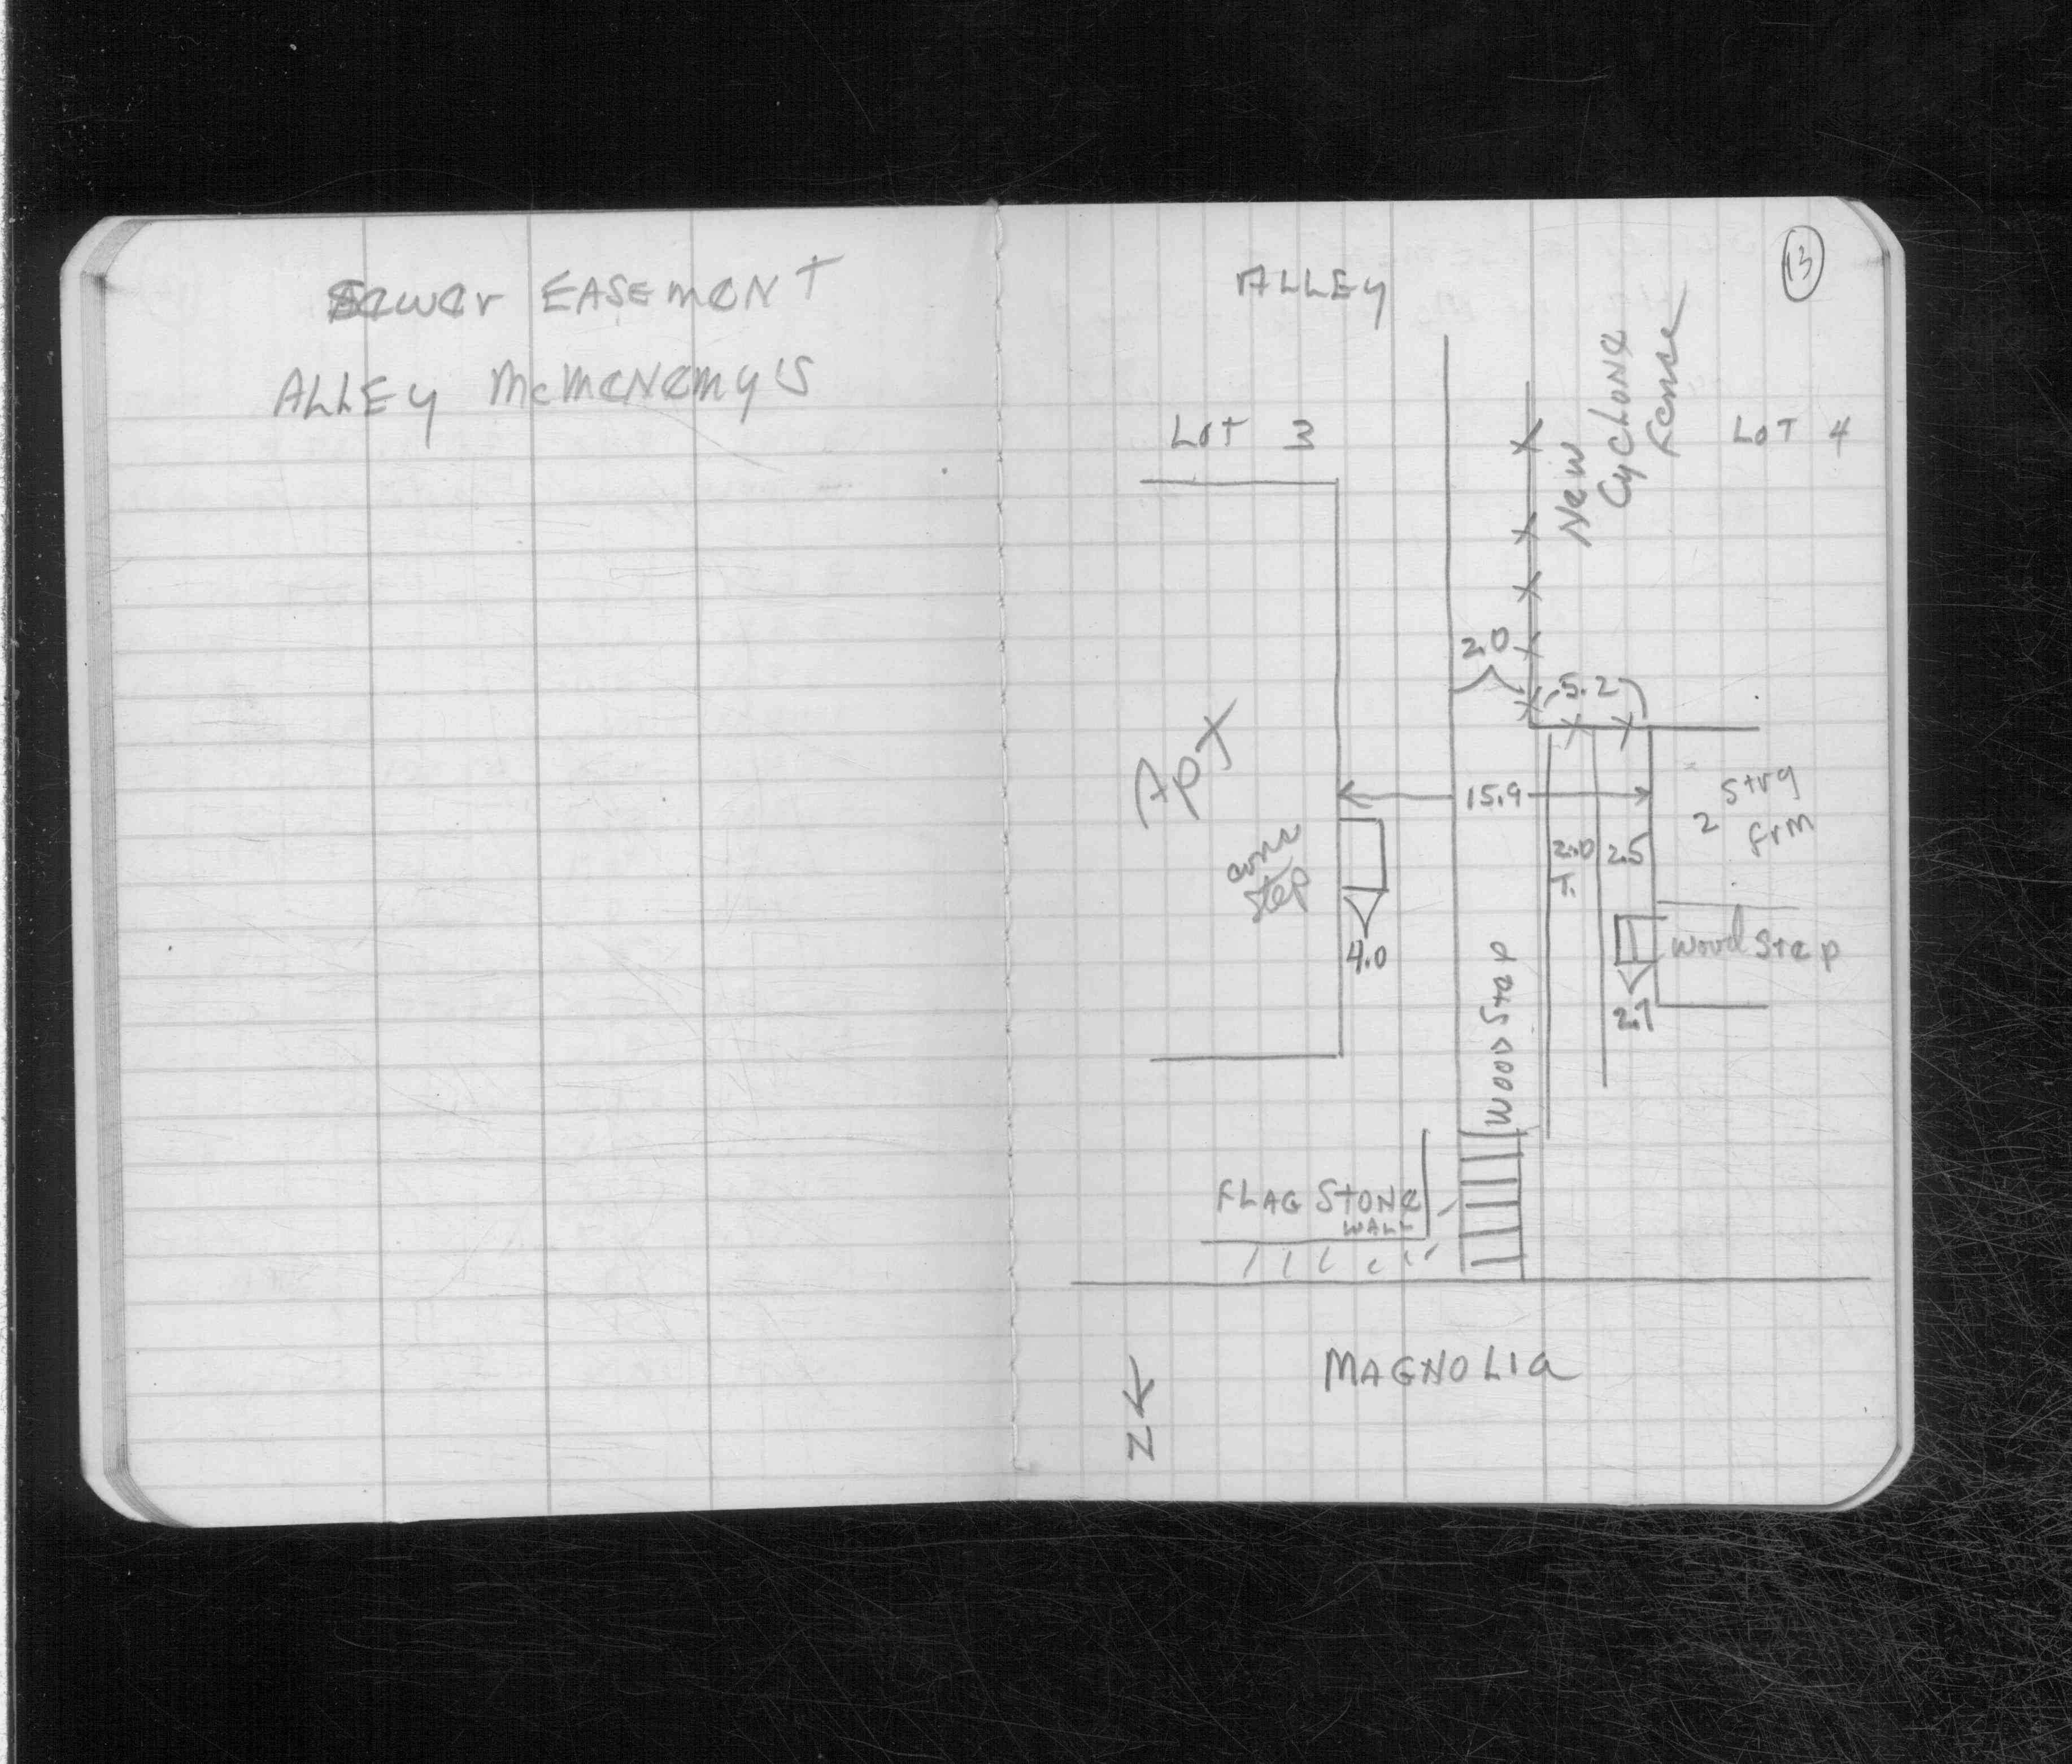 Sewer EASEMENT
ALLEY McMeNemy's
13
ALLEY
New
Cyclone
Fence
LOT 3
LOT 4
2.0
5.2
Apt
15.9
2 Stry
frm
conc
Step
2.0
T.
2.5
4.0
Wood Step
wood Step
2.7
FLAG STONE
WALL
MAGNOLIA
N